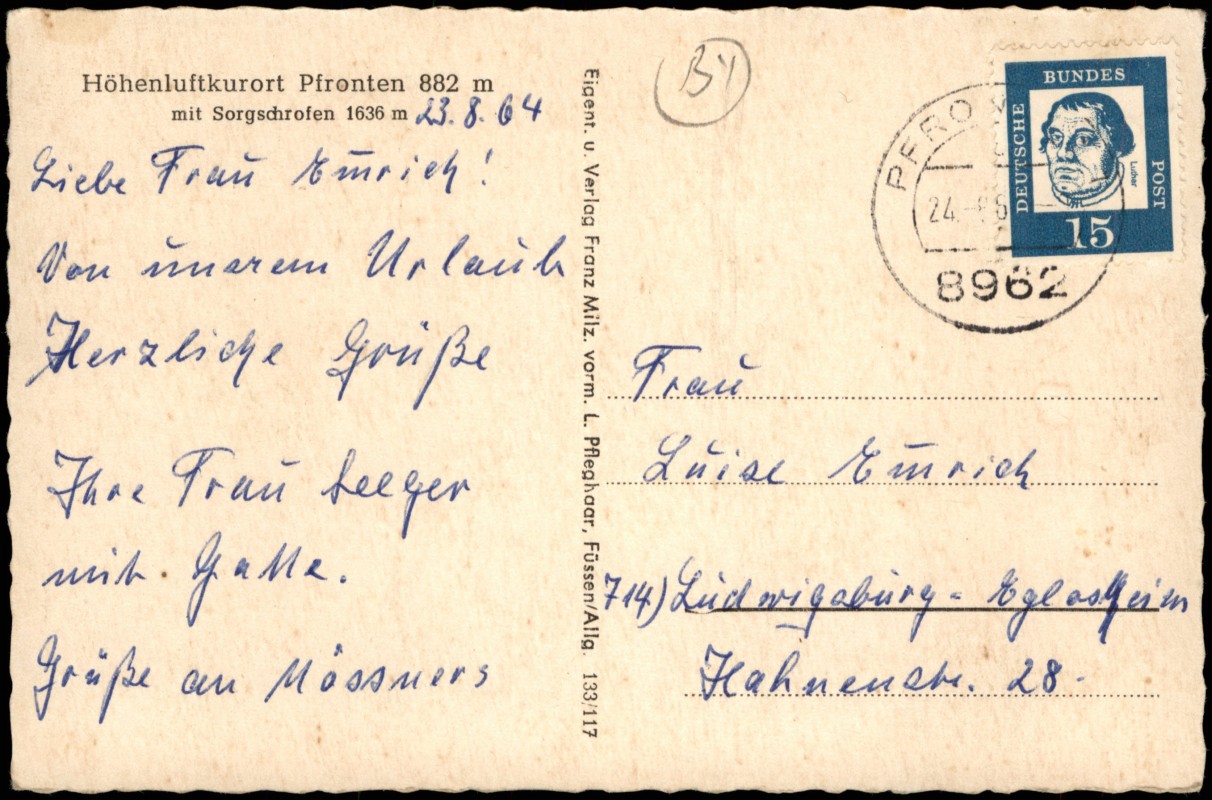 Höhenluftkurort Pfronten 882 m
mit Sorgschrofen 1636 m
23.8.64
Liebe Frau Emrich!
Von unserem Urlaub
Herzliche Grüße
Ihre Frau Seeger
mit Gatte.
Grüße an Mössners
Eigent. u. Verlag Franz Milz. vorm. L. Pfleghaar, Füssen/Allg. 133/117
BY
PFRO
24.
8962
DEUTSCHE BUNDES POST
Luther
15
Frau
Luise Emrich
714) Ludwigsburg - Eglosheim
Hahnenstr. 28.